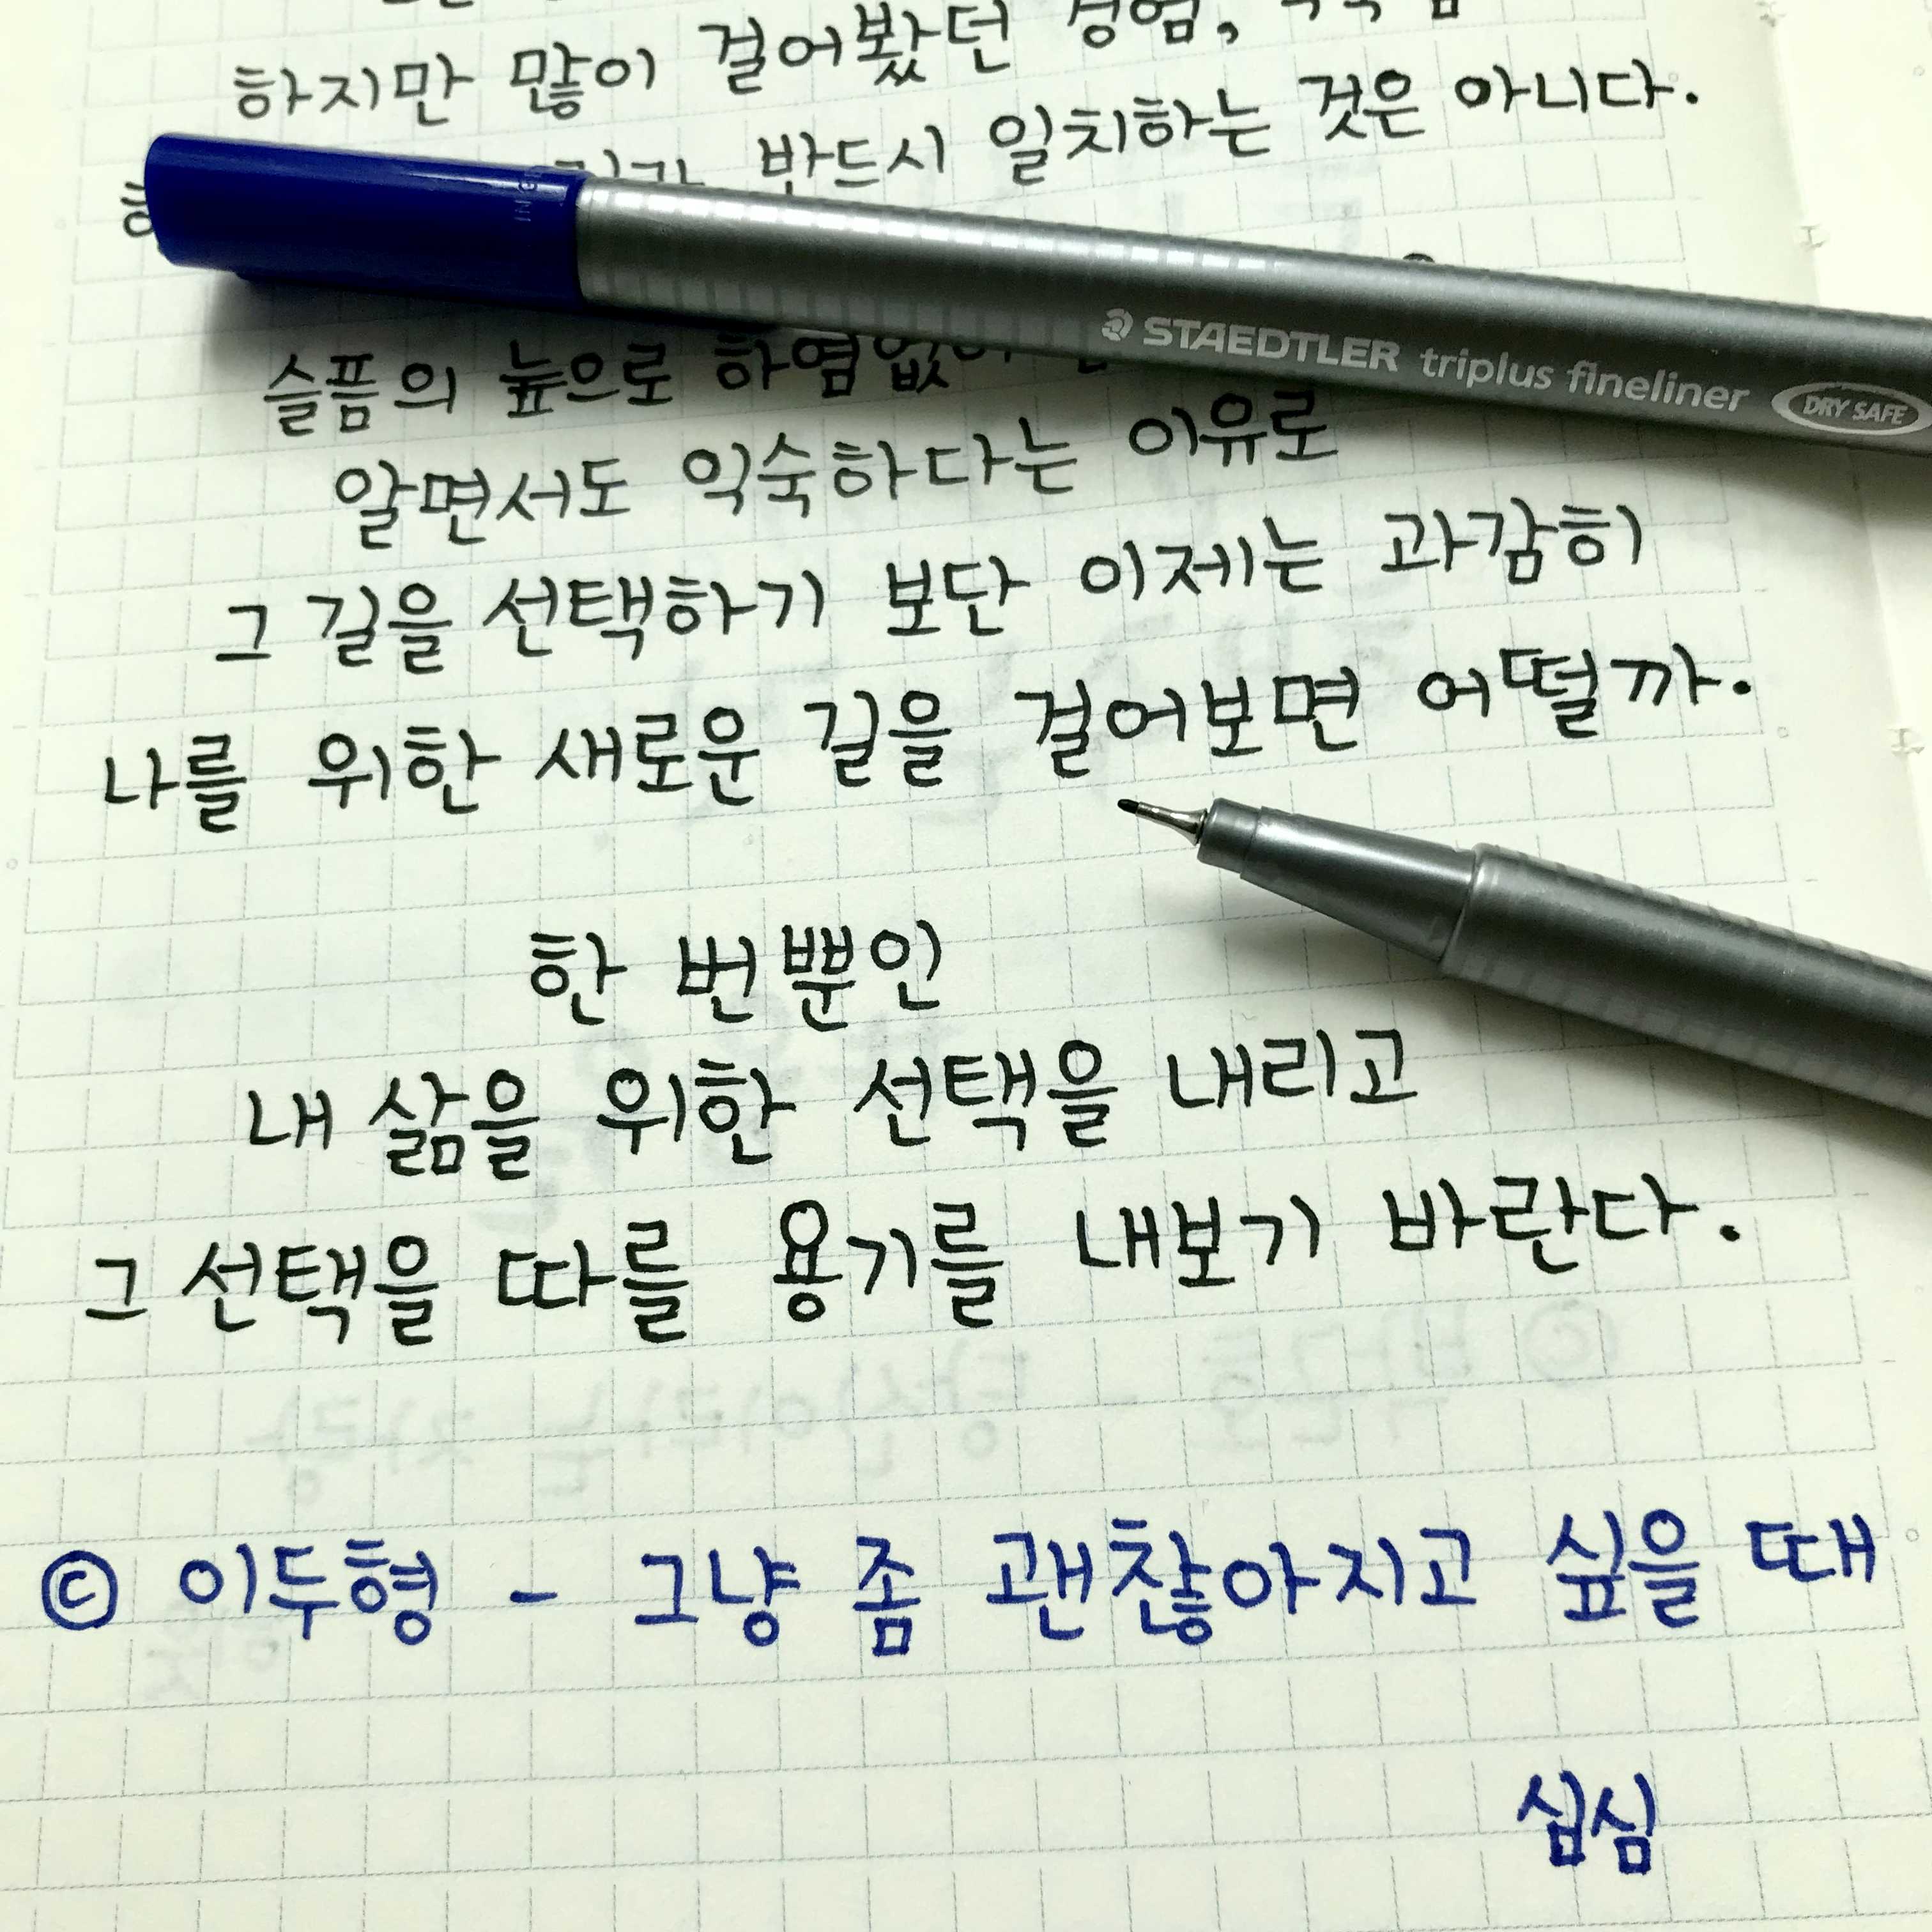 하지만 많이 걸어봤던
반드시 일치하는 것은 아니다.
STAEDTLER triplus fineliner DRY SAFE
슬픔의 늪으로 하염없이
알면서도 익숙하다는 이유로
그 길을 선택하기 보단 이제는 과감히
나를 위한 새로운 길을 걸어보면 어떨까.
한 번뿐인
내 삶을 위한 선택을 내리고
그 선택을 따를 용기를 내보기 바란다.
© 이두형 - 그냥 좀 괜찮아지고 싶을 때
십심